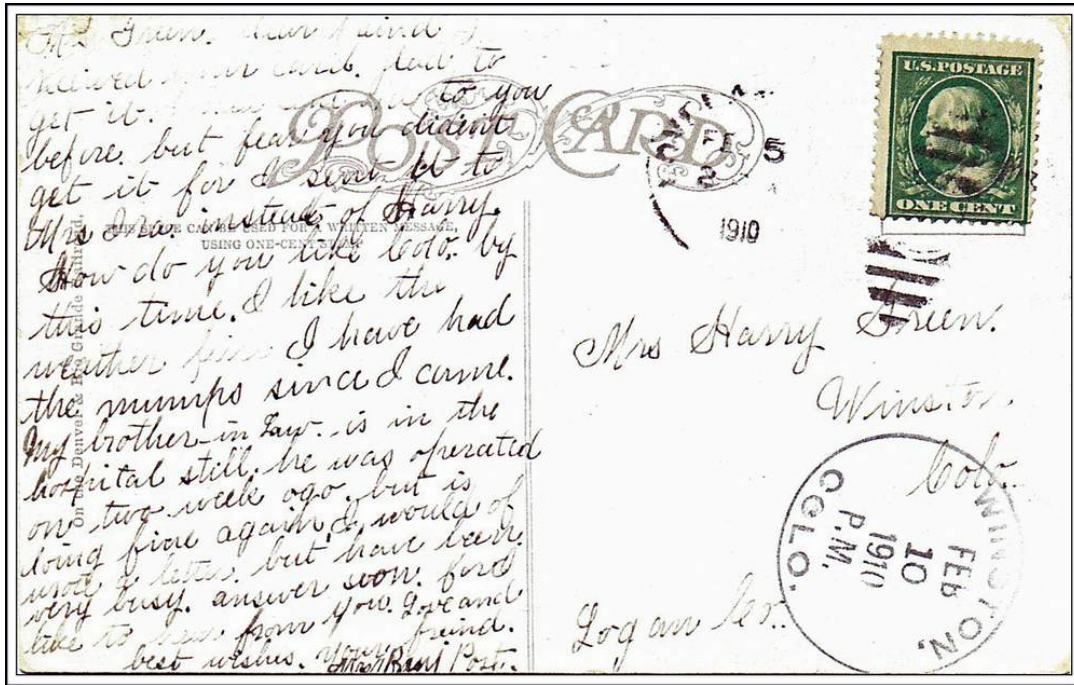 Mrs Green. Dear freind I
received your card. glad to
get it. to you
before. but fear you dident
get it for I sent it to
Mrs Ira. instead of Harry.
How do you like Colo. by
this time. I like the
weather fine I have had
the mumps since I came.
My brother-in Law. is in the
hospital still. he was operated
on two week ago. but is
doing fine again. I would of
wrote a letter. but have been
very busy. answer soon. for I
like to hear from you. Love and
best wishes. your freind.
Mrs Burl Post.
POST CARD
THIS SPACE CAN BE USED FOR A WRITTEN MESSAGE,
USING ONE-CENT STAMP
On the Denver & Rio Grande Railroad.
FEB 5
2
1910
U.S. POSTAGE
ONE CENT
Mrs Harry Green.
Winston.
Colo.
Logan Co.
WINSTON,
FEB
10
1910
P.M.
COLO.